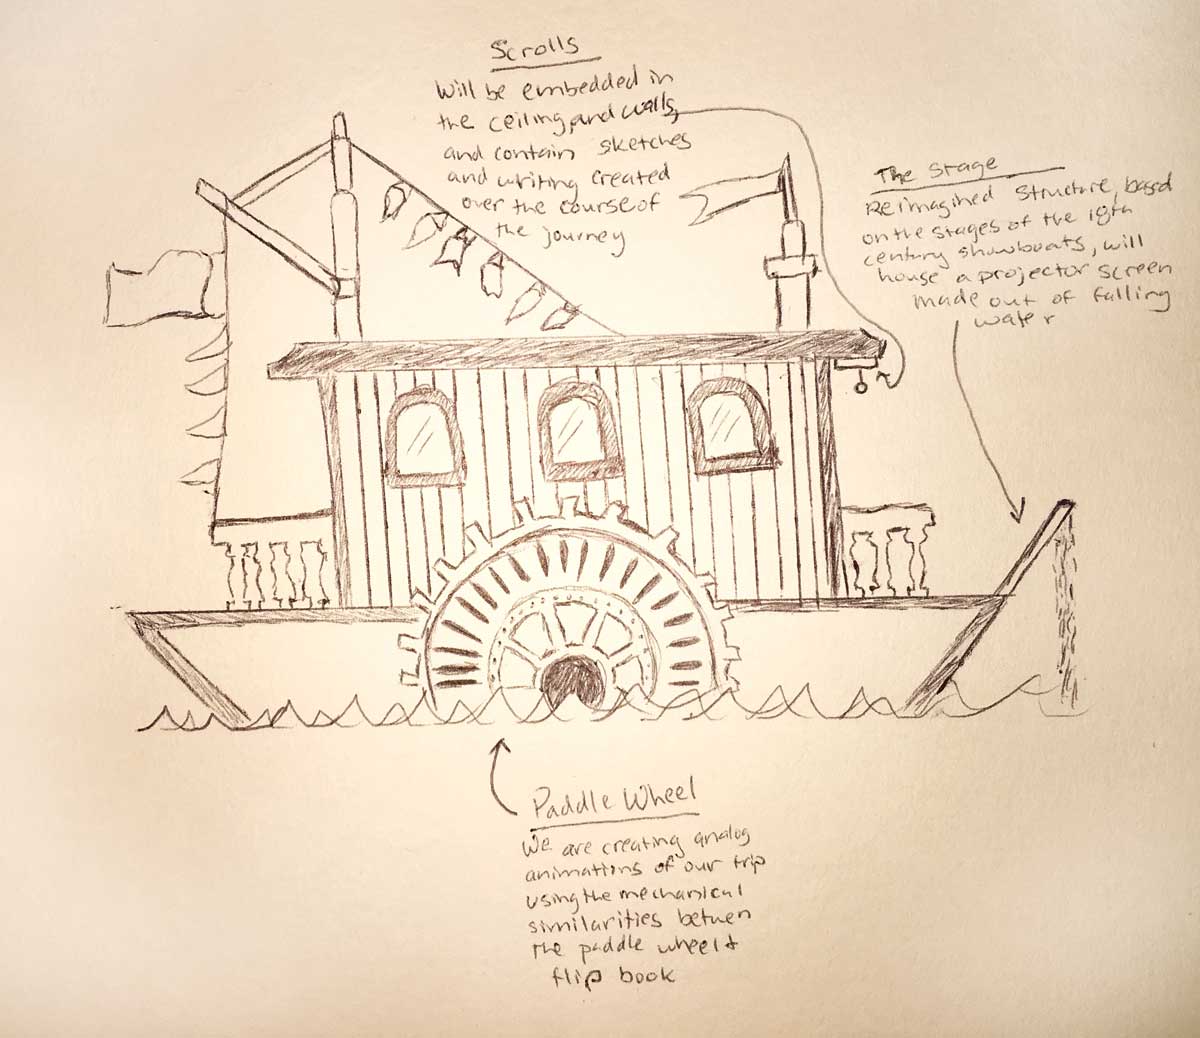 Scrolls
Will be embedded in
the ceiling and walls,
and contain sketches
and writing created
over the course of
the journey
The Stage
Reimagined structure, based
on the stages of the 18th
century showboats, will
house a projector screen
made out of falling
water
Paddle Wheel
We are creating analog
animations of our trip
using the mechanical
similarities between
the paddle wheel &
flip book